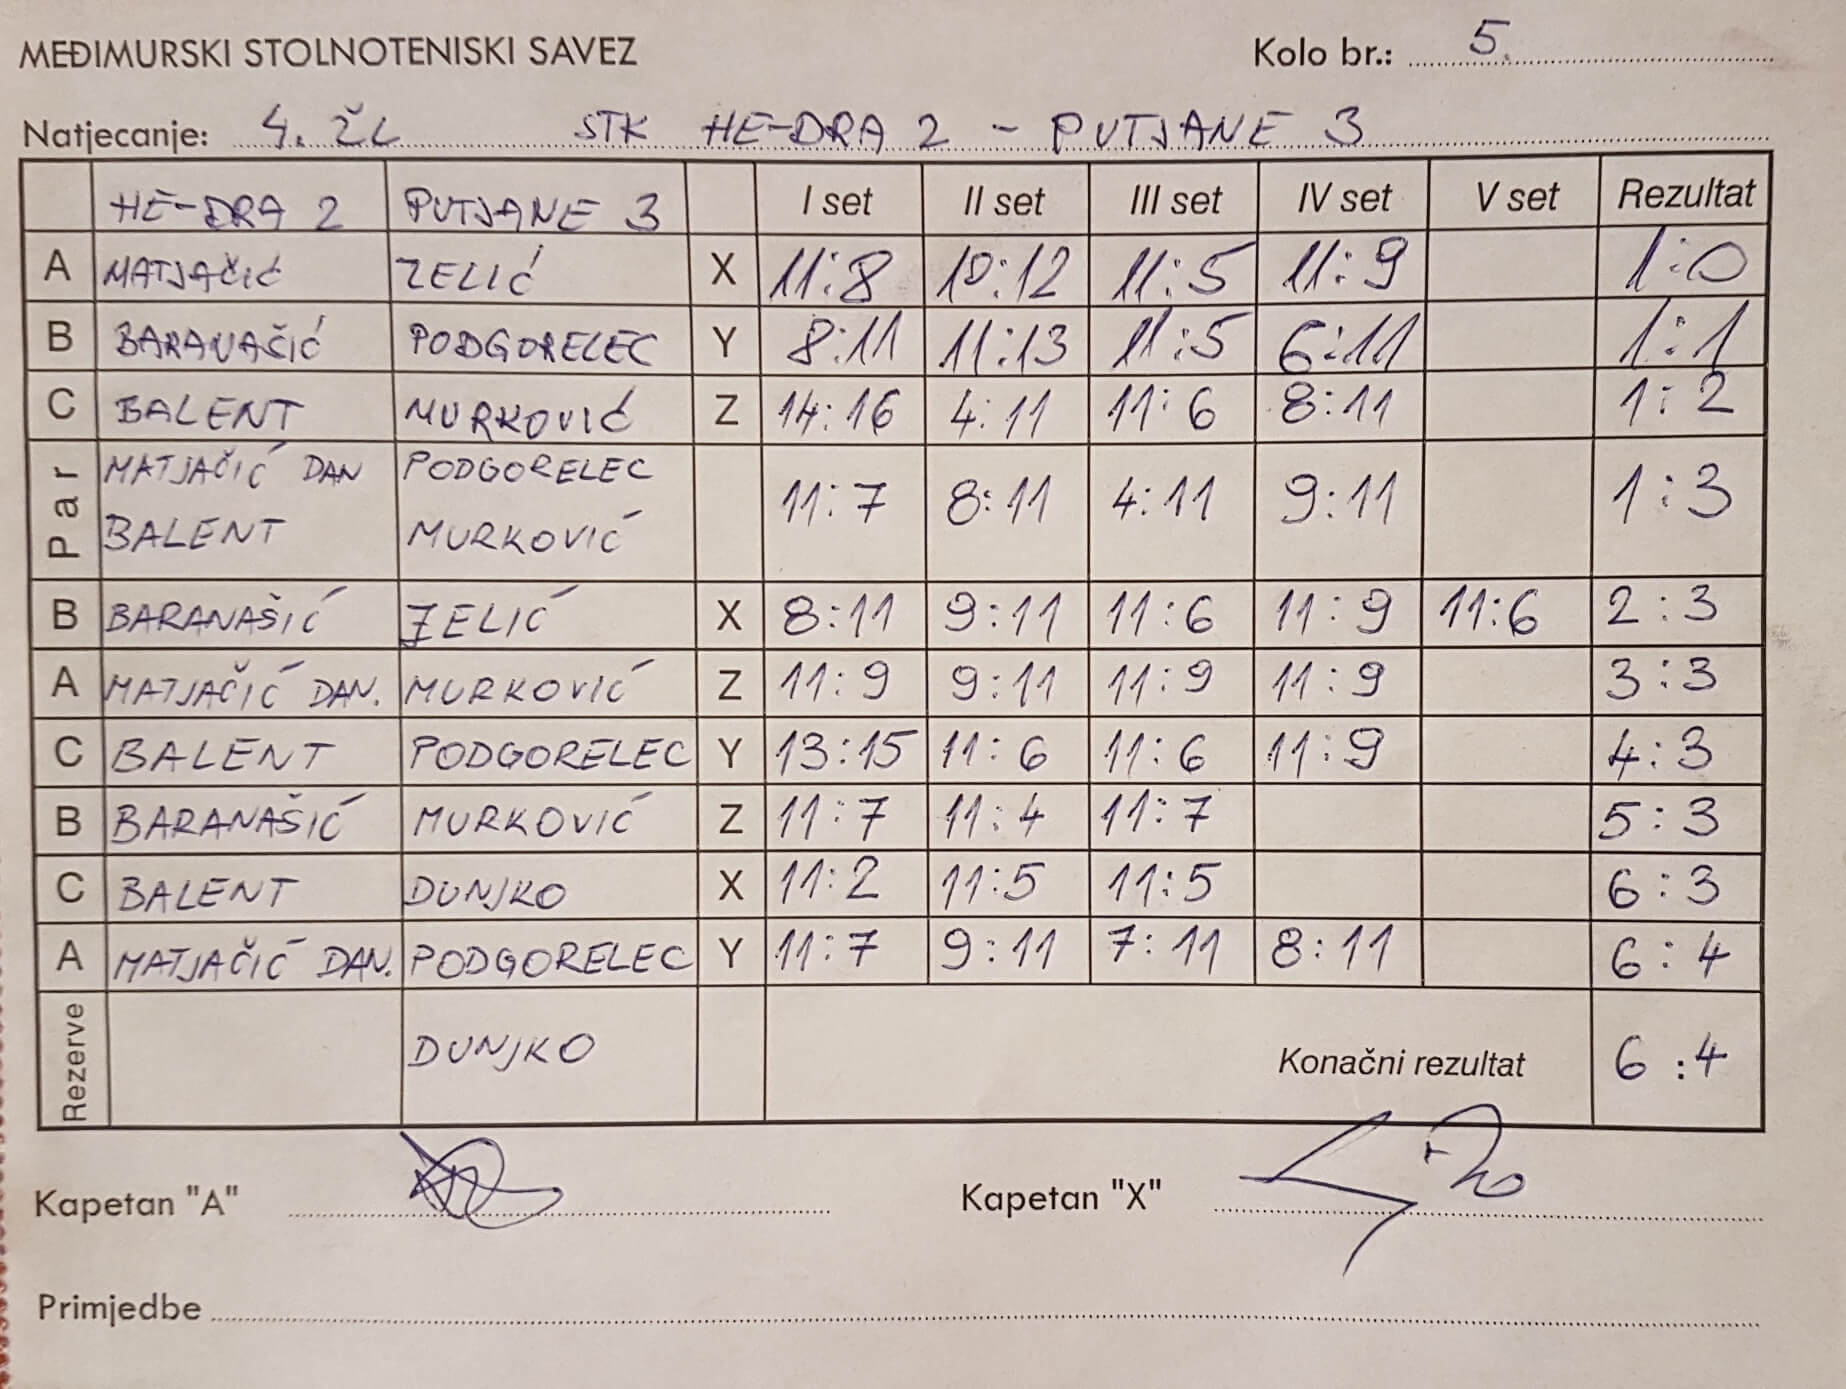 MEĐIMURSKI STOLNOTENISKI SAVEZ Kolo br.: 5.
Natjecanje: 4. ŽL STK HE-DRA 2 - PUTJANE 3
HE-DRA 2 PUTJANE 3 I set II set III set IV set V set Rezultat
A MATJAČIĆ ZELIĆ X 11:8 10:12 11:5 11:9 1:0
B BARANAŠIĆ PODGORELEC Y 8:11 11:13 11:5 6:11 1:1
C BALENT MURKOVIĆ Z 14:16 4:11 11:6 8:11 1:2
Par MATJAČIĆ DAN PODGORELEC 11:7 8:11 4:11 9:11 1:3
BALENT MURKOVIĆ
B BARANAŠIĆ ZELIĆ X 8:11 9:11 11:6 11:9 11:6 2:3
A MATJAČIĆ DAN. MURKOVIĆ Z 11:9 9:11 11:9 11:9 3:3
C BALENT PODGORELEC Y 13:15 11:6 11:6 11:9 4:3
B BARANAŠIĆ MURKOVIĆ Z 11:7 11:4 11:7 5:3
C BALENT DUNJKO X 11:2 11:5 11:5 6:3
A MATJAČIĆ DAN. PODGORELEC Y 11:7 9:11 7:11 8:11 6:4
Rezerve DUNJKO Konačni rezultat 6:4
Kapetan "A" Kapetan "X"
Primjedbe